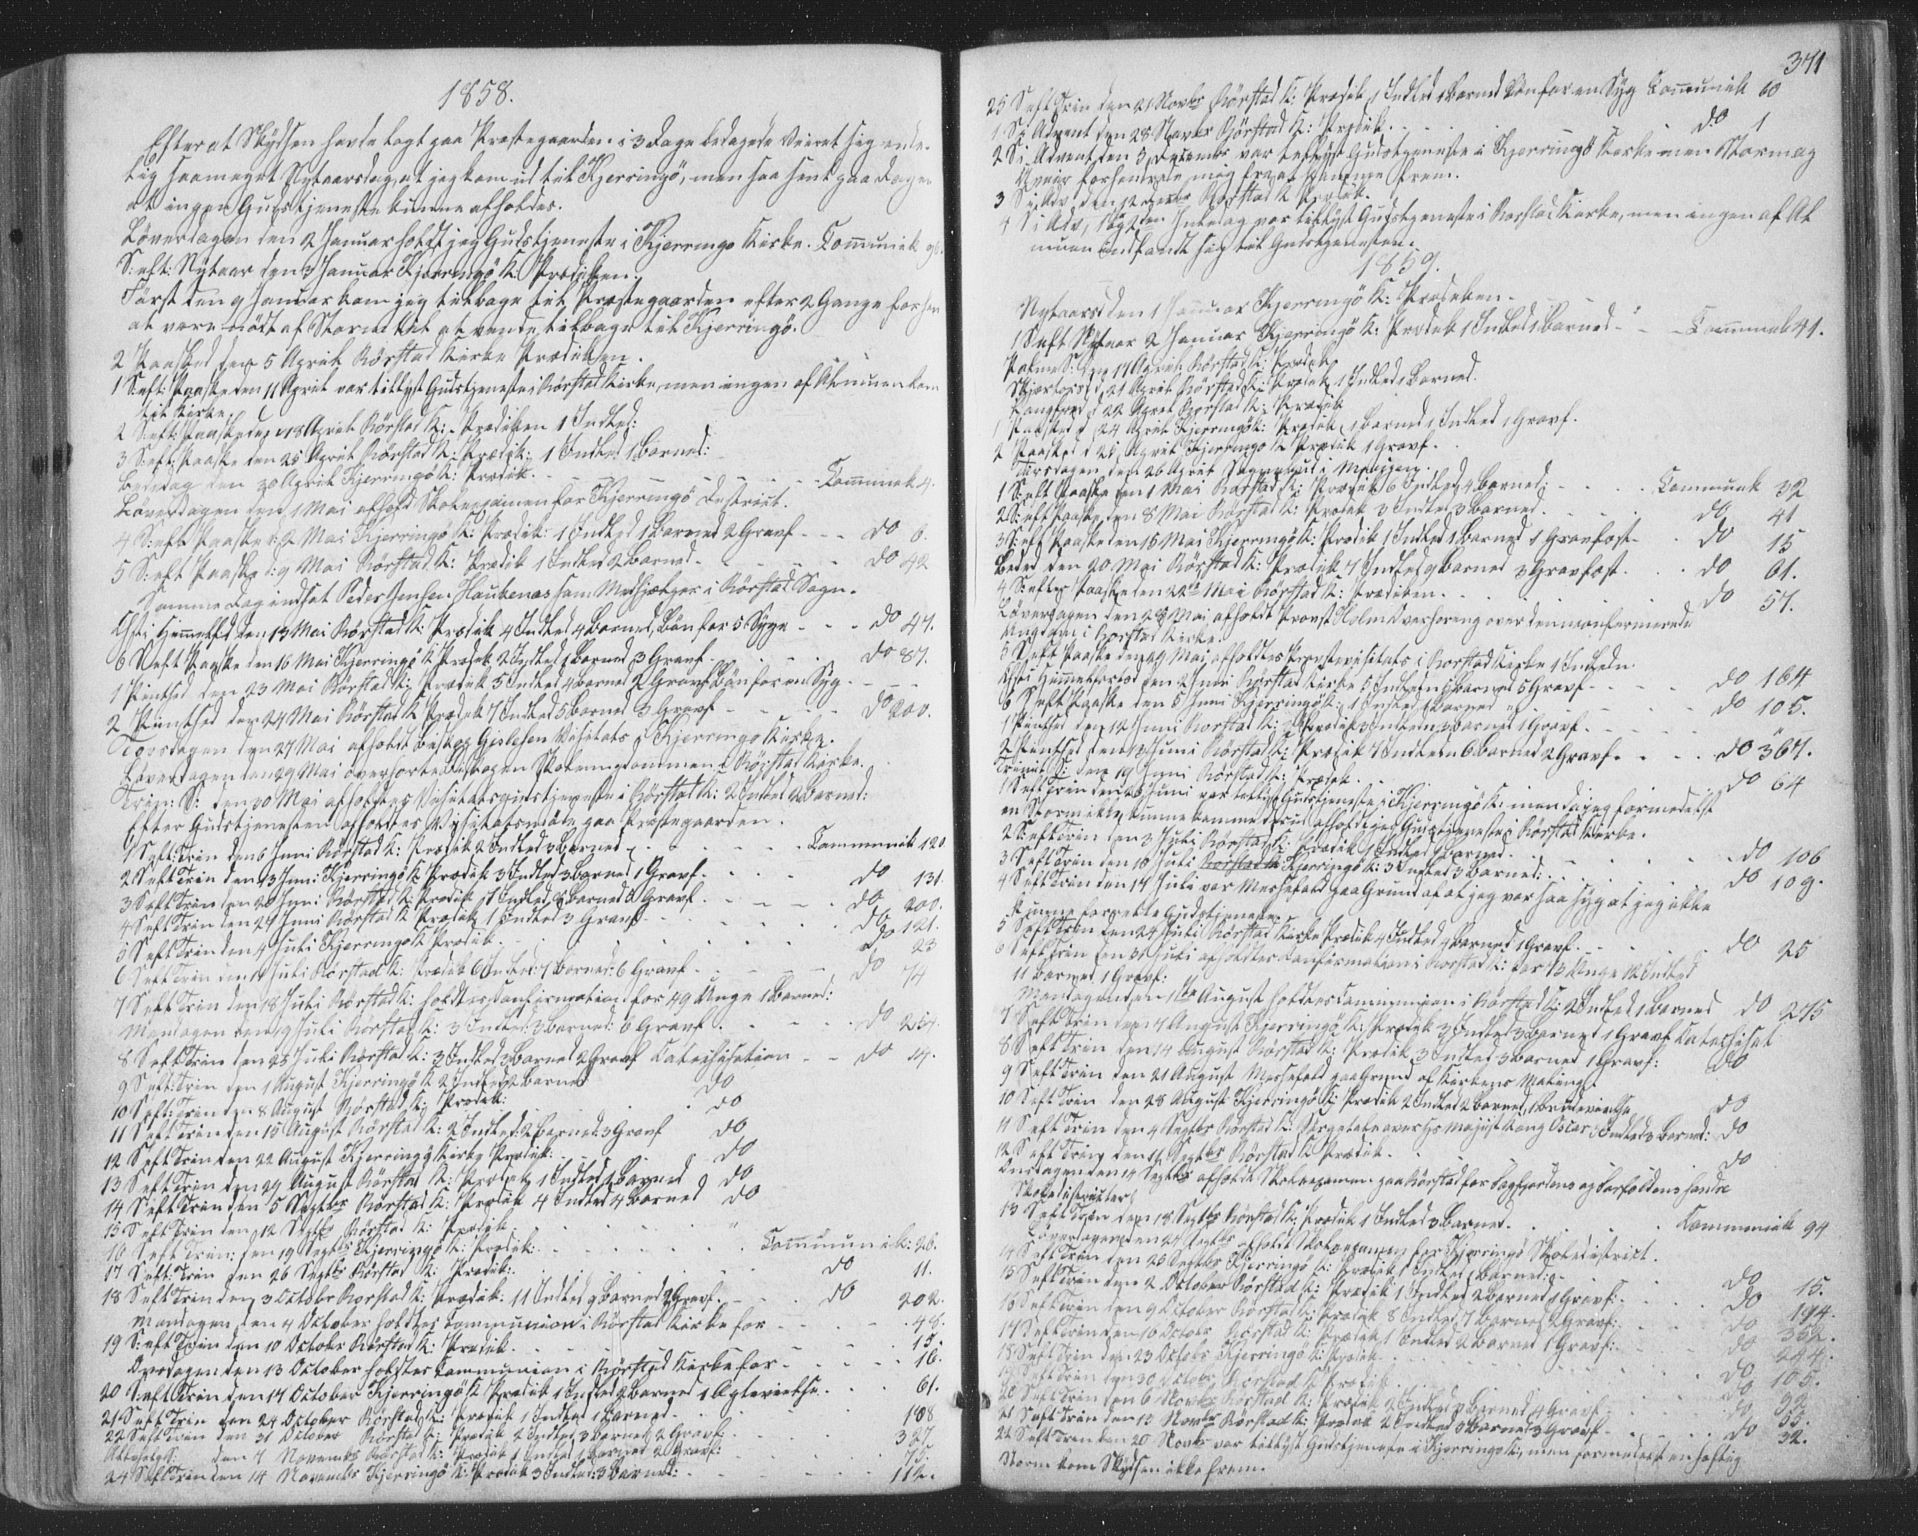 1858.
Efterat Skydsen havde lagt paa Præstegaarden i 3 Dage bedagede Veiret sig ende-
lig saameget Nytaarsdag, at jeg kom ud til Kjerringö, men saa sent paa Dagen
at ingen Gudstjeneste kunne afholdes.
Löverdagen den 2 Januar holdt jeg Gudstjeneste i Kjerringö Kirke. Communik
S: eft: Nytaar den 3 Januar Kjerringö K: Prædiken.
Först den 9 Januar kom jeg tilbage til Præstegaarden efter 2 Gange forgjæ
at være nödt af Storm til at vende tilbage til Kjerringö.
2 Paasked den 5 April Rörstad Kirke Prædiken.
1 S: eft: Paaske den 11 April var tillyst Gudstjeneste i Rörstad Kirke, men ingen af Almuen kom
til Kirke.
2 S: eft: Paaske den 18 April Rörstad K: Prædiken 1 Indled:
3 S: eft: Paaske den 25 April Rörstad K: Prædik: 1 Indled 1 Barned:
Bededag den 30 April Kjerringö K: Prædik. - - - Communik 4.
Löverdagen den 1 Mai afholdt Skoleexamen for Kjerringö District.
4 S: eft Paaske d: 2 Mai Kjerringö K: Prædik: 1 Indled 1 Barned 2 Gravf - - - do 6.
5 S: eft Paaske d: 9 Mai Rörstad K: Prædik 1 Indled 2 Barned - - - do 42
Samme Dag indsat Peder Jensen Haukenæs som Medhjælper i Rörstad Sogn.
Chsti Himmelfd den 13 Mai Rörstad K: Prædik 4 Indled 4 Barned, Bön for 5 Syge - - - do 47.
6 S eft Paaske den 16 Mai Kjerringö K Prædik 2 Indled 1 Barned 3 Gravf - - - do 87.
1 Pintsed den 23 Mai Rörstad K: Prædik 5 Indled 4 Barned 2 Gravf Bön for en Syg. - - -
2 Pintsed den 24 Mai Rörstad K Prædik 7 Indled 5 Barned 3 Gravf - - - do 200.
Torsdagen den 27 Mai afholdt Biskop Gislesen Visitats i Kjerringö Kirke.
Löverdagen den 29 Mai overhörte Biskopen Skoleungdommen i Rörstad Kirke.
Trin: S: den 30 Mai afholdtes Visitatsgudstjeneste i Rörstad K: 2 Indled 2 Barned:
Efter Gudstjenesten afholdtes Visitatsmöde paa Præstegaarden.
1 S eft: Trin den 6 Juni Rörstad K: Prædik 2 Indled 3 Barned - - - Communik 120
2 S eft Trin den 13 Juni Kjerringö K Prædik 3 Indled 3 Barned 1 Gravf. - - - do 131.
3 S eft Trin den 20 Juni Rörstad K: Prædik Indled Barned Gravf. - - - do 200.
4 S eft Trin den 27 Juni Rörstad K Prædik 1 Indled 3 Gravf - - - do 121.
5 S eft Trin den 4 Juli Kjerringö K Prædik. - - - do 23
6 S eft Trin den 11 Juli Rörstad K: Prædik 6 Indled: 7 Barned: 6 Gravf - - - do 74
7 S eft Trin den 18 Juli Rörstad K: holdtes Confirmation for 49 Unge 1 Barned:
Mandagen den 19 Juli Rörstad K: 3 Indled: 3 Barned: 6 Gravf. - - - do 254.
8 S eft Trin den 25 Juli Rörstad K: 3 Indled 3 Barned 2 Gravf Catechisation - - do 4.
9 S eft: Trin den 1 August Kjerringö K 2 Indled 2 Barned do
10 S eft: Trin den 8 August Rörstad K: Prædik: do
11 S eft Trin den 15 August Rörstad K: 2 Indled: 2 Barned: 3 Gravf do
12 S eft Trin den 22 August Kjerringö Kirke Prædik: do
13 S eft Trin den 29 August Rörstad K: Prædik 1 Indled 1 Barned do
14 S eft Trin den 5 Septbr Rörstad K: Prædik 4 Indled 4 Barned do
15 S eft Trin den 12 Septbr Rörstad K: Prædik. - - - "
16 S eft Trin: den 19 Septbr Kjerringö K: Prædik: - - - Communik: 26.
17 S eft: Trin den 26 Septbr Rörstad K: Prædik: - - - do 11.
18 S eft Trin den 3 October Rorstad K: Prædik: 11 Indled 9 Barned 2 Gravf. - - - do 202.
Mandagen den 4 October holdtes Communion i Rörstad Kirke for - - - 48.
19 S: eft Trin den 10 October Rörstad K: Prædik. - - - 15.
Onsdagen den 13 October holdtes Communion i Rörstad Kirke for - - - 16.
20 S eft Trin den 17 October Kjerringö K Prædik 1 Indled 2 Barned 1 Ægtevielse. - - - 61.
21 S eft Trin den 24 October Rörstad K: Prædik 1 Indled 1 Barned. - - - 108
22 S eft Trin den 31 October Rörstad K: Prædik 2 Indled 3 Barned 2 Gravf: - - - 327
Allehelgd: den 7 Novembr Rörstad K: Prædik 1 Indled 1 Barned 2 Gravf: - - - 75.
24 S eft Trin den 14 Novembr Kjerringö K: Prædik 3 Indled: 3 Barned: - - - 116.
371
25 S eft Trin den 21 Novbr Rörstad K: Prædik 1 Indled 1 Barned Bön for en Syg Communik 60
1 S: i Advent den 28 Novbr Rörstad K: Prædik. - - - do 1
2 S: i Advent den 5 Decembr var tillyst Gudstjeneste i Kjerringö Kirke men Storm og
Uveir forhindrede mig fra at komme frem.
3 S: i Adv. den 12 Decembr Rörstad K Prædik.
4 S i Adv, 1ste og 2den Juledag var tillyst Gudstjeneste i Rorstad Kirke, men ingen af Al
muen indfandt sig til Gudstjenesten.
1859.
Nytaarsd den 1 Januar Kjerringö K: Prædiken.
1 S eft Nytaar 2 Januar Kjerringö K: Prædik 1 Indled 1 Barned - - - Communik 41.
Palme S: den 17 April Rörstad K: Prædik
Skjærtorsd d 21 April Rörstad K: Prædik 1 Indled 1 Barned.
Langfred d 22 April Rörstad K: Prædik
1 Paasked d 24 April Kjerringö K: Prædik 1 Barned 1 Indled 1 Gravf.
2 Paasked d 25 April Kjerringö K Prædik 1 Gravf.
Tirsdagen den 26 April
1 S: eft Paaske den 1 Mai Rörstad K: Prædik 6 Indled 4 Barned: - - - Communik 32
2 S: eft Paaske den 8 Mai Rörstad K: Prædik 3 Indled 3 Barned. - - - do 41
3 S: eft Paaske den 15 Mai Kjerringö K: Prædik 1 Indled 1 Barned 1 Gravfæst - - do 15
Beded den 20 Mai Rörstad K: Prædik 7 Indled 9 Barned 3 Gravfæst. - - - do 61.
4 S efter Paaske den 22de Mai Rörstad K: Prædiken. - - - do 57.
Löverdagen den 28 Mai afholdt Provst Holmb overhöring over den uconfirmerede
Ungdom i Rorstad Kirke.
5 S eft Paaske den 29 Mai afholdtes Provstevisitats i Rorstad Kirke 1 Indledn
Chsti Himmelfartsd den 2 Juni Rörstad Kirke 5 Indledn Barned 5 Gravf - - - do 164
6 S eft Paaske den 5 Juni Kjerringö K: 1 Indled 1 Barned - - - do 105.
1 Pintsed den 12 Juni Rorstad K: Prædik 3 Indledn 2 Barned 1 Gravf. - - - "
2 Pintsed den 13 Juni Rörstad K: Prædik 7 Indledn 6 Barned 2 Gravf. - - - do 367.
Trinit S: den 19 Juni Rörstad K: Prædik. - - - do 64
1 S eft Trin den 26 Juni var tillyst Gudstjeneste i Kjerringö K: men da jeg formedelst
en Storm ikke kunne komme derud afholdt jeg Gudstjeneste i Rörstad Kirke.
2 S: eft Trin den 3 Juli Rörstad K: Prædik 1 Indled 1 Barned. - - - do 106
3 S eft Trin den 10 Juli Kjerringö K: 3 Indled 3 Barned: - - - do 109.
4 S eft Trin den 17 Juli var Messefald paa Grund af at jeg var saa syg at jeg ikke
kunne forrette Gudstjeneste
5 S eft Trin den 24 Juli Rörstad Kirke Prædik 4 Indled 4 Barned 1 Gravf. - - - do 25
6 S eft Trin den 31 Juli afholdtes Confirmation i Rorstad K: for 13 Unge 12 Indled
11 Barned 1 Gravf:
Mandagen den 1ste August holdtes Communion i Rörstad K: 2 Indled 1 Barned do 275
7 S eft Trin den 7 August Kjerringö K: Prædik 3 Indled 3 Barned 1 Gravf Catechisat
8 S eft Trin den 14 August Rörstad K: Prædik 3 Indled 3 Barned 1 Gravf: do
9 S eft Trin den 21 August Messefald paa Grund af Kirkens Maling.
10 S eft Trin den 28 August Kjerringö K: Prædik 2 Indled 2 Barned 1 Brudevielse do
11 S eft Trin den 4 Septbr Rörstad K: Sörgetale over Hs Majest Kong Oscar, Indled 3 Barned: do
12 S eft Trin den 11 Septbr Rörstad K Prædik. - - - do
Onsdagen den 14 Septbr afholdt Skoleexamen paa Rörstad for
Skoledistricter.
13 S eft Trin den 18 Septbr Rörstad K: Prædik 1 Indled 3 Barned. - - - Communik 94
Löverdagen den 24 Septbr afholdt Skoleexamen for Kjerringö Skoledistrict.
14 S eft Trin den 25 Septbr Kjerringö K: Prædik 1 Indled 1 Barned: - - - do 15.
15 S eft Trin den 2 October Rörstad K: Prædik 1 Indled 2 Barned 1 Gravf: - - - do 194.
16 S eft Trin den 9 October Rörstad K: Prædik 8 Indled 7 Barned 2 Gravf: - - - do 362.
17 S eft Trin den 16 Octobr Rörstad K: Prædik 1 Indled 2 Barned 1 Gravf: - - - do 244.
18 S eft Trin den 23 Octobr Kjerringö K: Prædik - - - do 105.
19 S eft Trin den 30 Octobr Rorstad K Prædik - - - do 92
20 S eft Trin den 6 Novbr Rörstad K: Prædik 2 Indled 2 Barned 4 Gravf: - - - do 55.
21 S eft Trin den 13 Novbr Rörstad K: Prædik 2 Indled 3 Barned 3 Gravf - - - do 32.
22 S eft Trin den 20 Novbr var tillyst Gudstjeneste i Kjerringö K:, men formedelst en heftig
Storm kom Skydsen ikke frem.